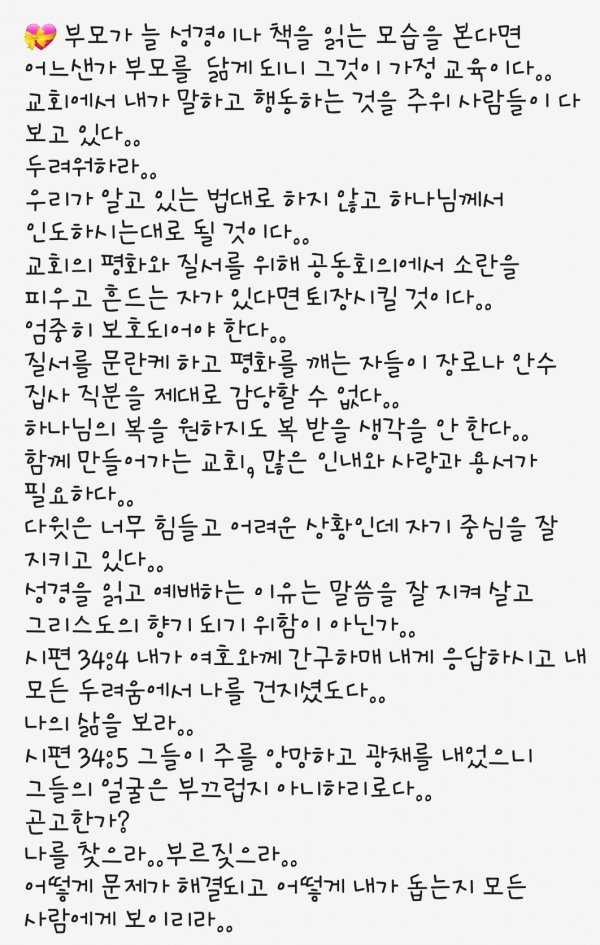 💝 부모가 늘 성경이나 책을 읽는 모습을 본다면
어느샌가 부모를 닮게 되니 그것이 가정 교육이다..
교회에서 내가 말하고 행동하는 것을 주위 사람들이 다
보고 있다..
두려워하라..
우리가 알고 있는 법대로 하지 않고 하나님께서
인도하시는대로 될 것이다..
교회의 평화와 질서를 위해 공동회의에서 소란을
피우고 흔드는 자가 있다면 퇴장시킬 것이다..
엄중히 보호되어야 한다..
질서를 문란케 하고 평화를 깨는 자들이 장로나 안수
집사 직분을 제대로 감당할 수 없다..
하나님의 복을 원하지도 복 받을 생각을 안 한다..
함께 만들어가는 교회, 많은 인내와 사랑과 용서가
필요하다..
다윗은 너무 힘들고 어려운 상황인데 자기 중심을 잘
지키고 있다..
성경을 읽고 예배하는 이유는 말씀을 잘 지켜 살고
그리스도의 향기 되기 위함이 아닌가..
시편 34:4 내가 여호와께 간구하매 내게 응답하시고 내
모든 두려움에서 나를 건지셨도다..
나의 삶을 보라..
시편 34:5 그들이 주를 앙망하고 광채를 내었으니
그들의 얼굴은 부끄럽지 아니하리로다..
곤고한가?
나를 찾으라..부르짖으라..
어떻게 문제가 해결되고 어떻게 내가 돕는지 모든
사람에게 보이리라..